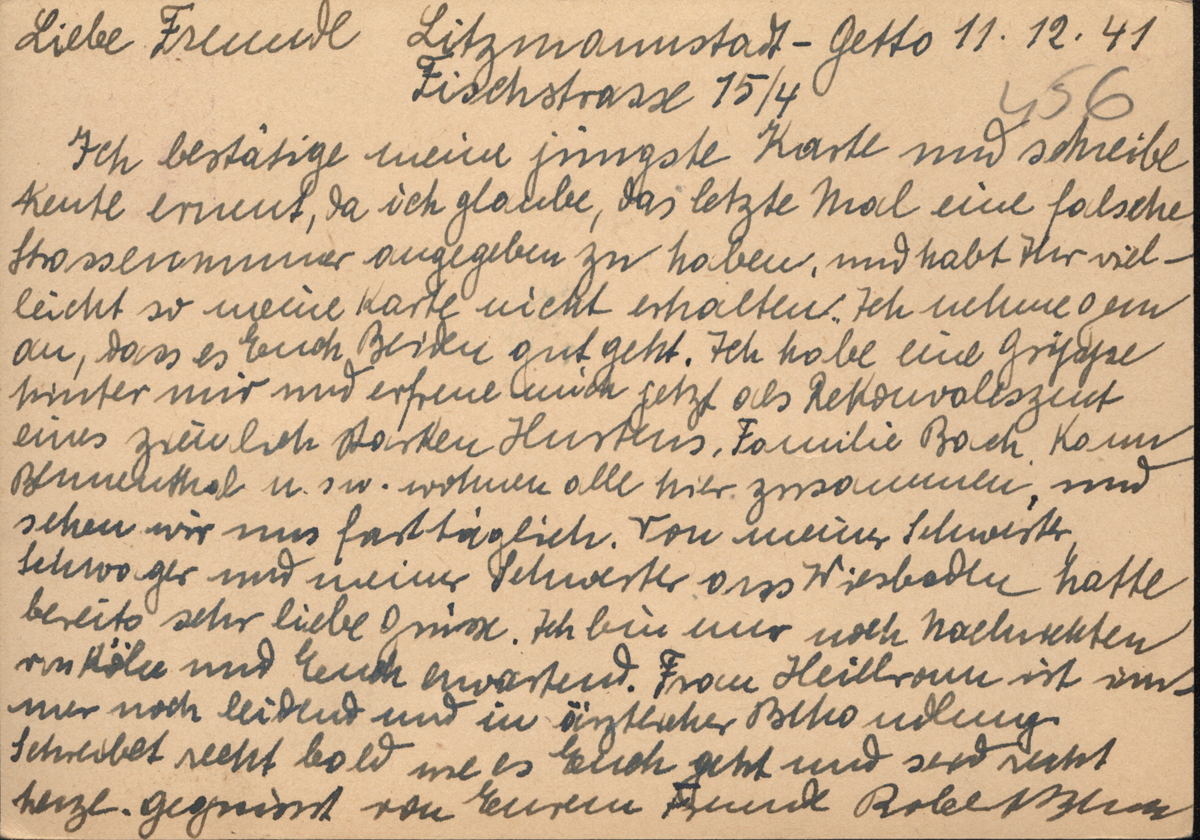 Liebe Freunde Litzmannstadt - Getto 11. 12. 41
Fischstrasse 15/4
456
Ich bestätige meine jüngste Karte und schreibe
heute erneut, da ich glaube, das letzte Mal eine falsche
Strassenummer angegeben zu haben, und habt Ihr viel-
leicht so meine Karte nicht erhalten. Ich nehme gern
an, dass es Euch Beiden gut geht. Ich habe eine Grippe
hinter mir und erfreue mich jetzt als Rekonvaleszent
eines ziemlich starken Hustens. Familie Bach, Kann
Blumenthal u. sw. wohnen alle hier zusammen, und
sehen wir uns fast täglich. Von meiner Schwester,
Schwager und meiner Schwester aus Wiesbaden hatte
bereits sehr liebe Grüsse. Ich bin nur noch Nachrichten
von Köln und Euch erwartend. Frau Heilbronn ist im-
mer noch leidend und in ärztlicher Behandlung.
Schreibet recht bald wie es Euch geht und seid recht
herzl. gegrüsst von Eurem Freund Robert